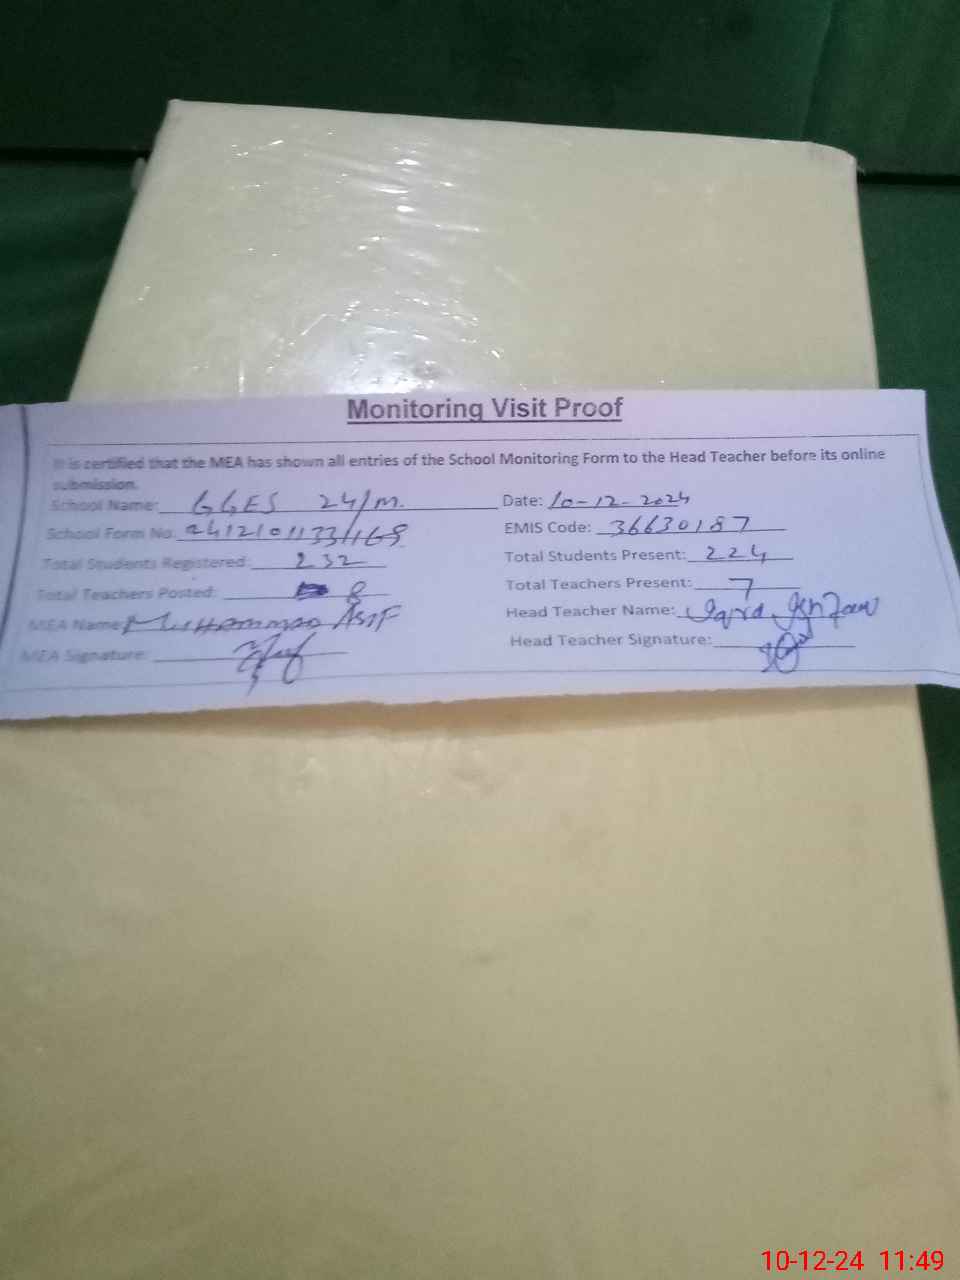 Monitoring Visit Proof
It is certified that the MEA has shown all entries of the School Monitoring Form to the Head Teacher before its online
submission.
School Name: GGES 24/M. Date: 10-12-2024
School Form No. EMIS Code: 36630187
Total Students Registered: 232 Total Students Present: 224
Total Teachers Posted: 8 Total Teachers Present: 7
MEA Name: Muhammad Asif Head Teacher Name:
MEA Signature: Head Teacher Signature:
10-12-24 11:49